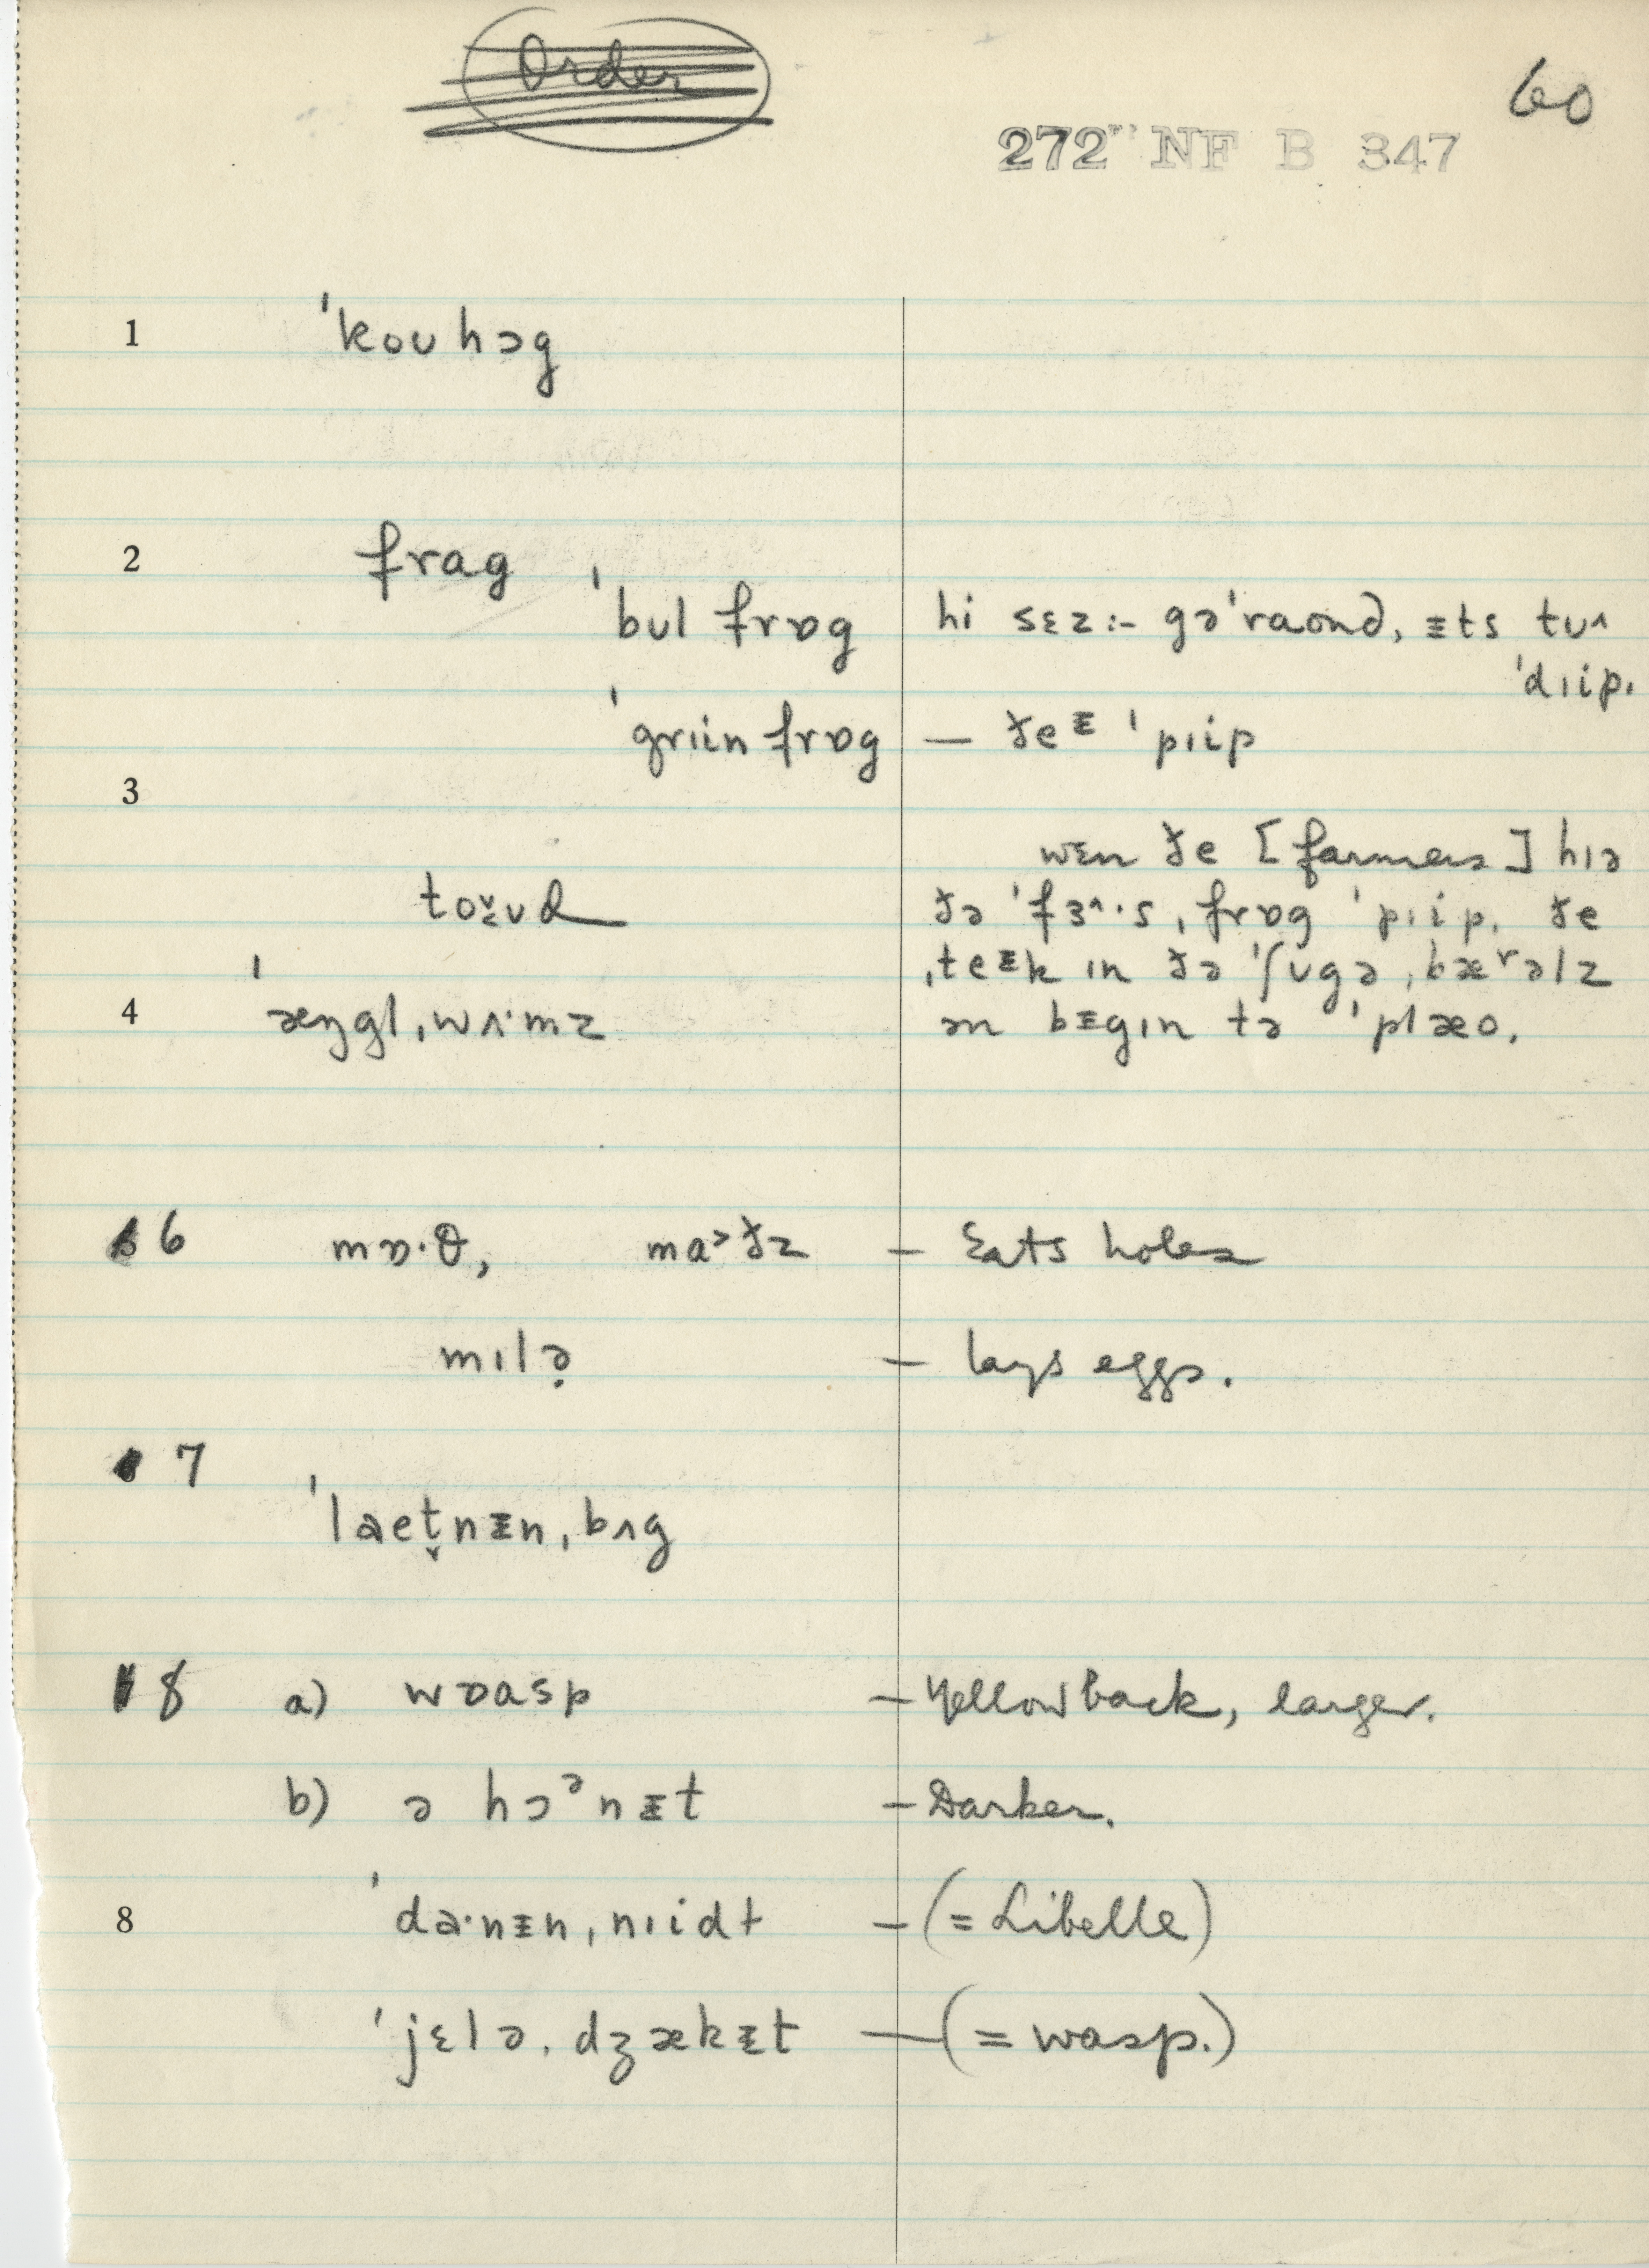 Order
60
272 NF B 347
1 ˈkoʊhɔg
2 frag
ˈbʊl frɒg hi sɛz:- gəˈraond, ᵻts tuʌ
ˈdɪip.
ˈgrɪin frɒg — ðeᵻ ˈpɪip
3
wɛn ðe [farmers] hɪə
toʊ̬d ðə ˈfɜ^·s ˌfrɒg ˈpɪip. ðe
ˌteᵻk ɪn ðə ˈʃʊgə ˌbærəlz
4 ˈæŋglˌwʌ·mz ən bᵻgɪn tə ˈplæo.
6 mɒ·θ, ma>ðz — Eats holes
mɪlə̣ — lays eggs.
7
ˈlaet̬nᵻnˌbʌg
8 a) wɒasp — Yellow back, larger.
b) ə hɔᵊnᵻt — Darker.
8 ˈda·nᵻnˌnɪidɫ — (= Libelle)
ˈjɛləˌdʒækᵻt — (= wasp.)